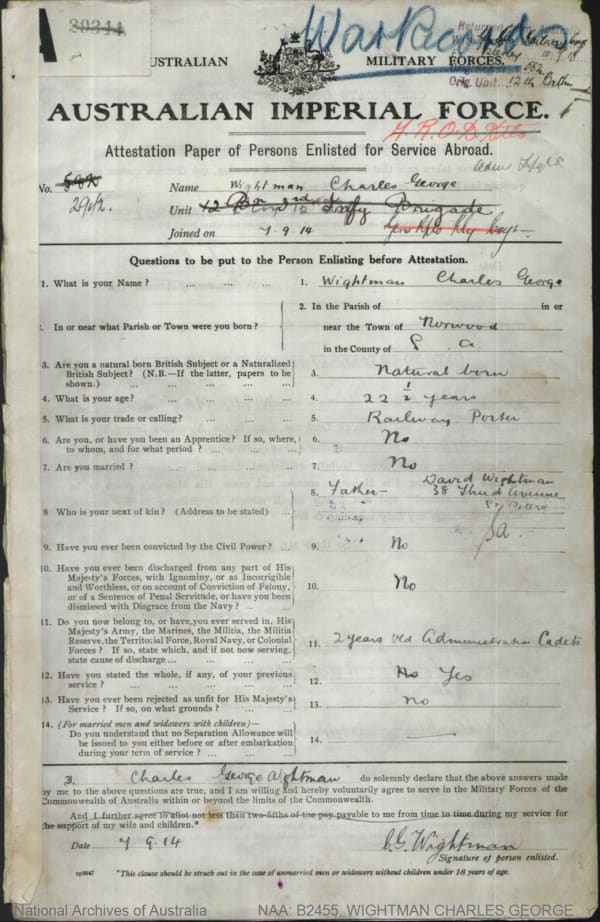 30344
War Records
Returned to Australia
AUSTRALIAN MILITARY FORCES.
Orig. Unit. 12th Battn
AUSTRALIAN IMPERIAL FORCE.
A.R.O.D. Dets
Attestation Paper of Persons Enlisted for Service Abroad.
Adm Hqrs.
No. 582 Name Wightman Charles George
Unit 12 Bn 3rd Infy Brigade
Joined on 7.9.14
Questions to be put to the Person Enlisting before Attestation.
1. What is your Name? ... ... ... 1. Wightman Charles George
2. In the Parish of in or
. In or near what Parish or Town were you born? near the Town of Norwood
in the County of S. A.
3. Are you a natural born British Subject or a Naturalized
British Subject? (N.B.—If the latter, papers to be 3. Natural born
shown.) ... ... ... ...
4. What is your age? ... ... ... 4. 22 ½ years
5. What is your trade or calling? ... ... 5. Railway Porter
6. Are you, or have you been an Apprentice? If so, where, 6. No
to whom, and for what period? ... ... ...
7. Are you married? ... ... ... 7. No
David Wightman
8. Father 38 Third Avenue
8 Who is your next of kin? (Address to be stated) ... St Peters
SA.
9. Have you ever been convicted by the Civil Power? ... 9. No
10. Have you ever been discharged from any part of His
Majesty's Forces, with Ignominy, or as Incorrigible
and Worthless, or on account of Conviction of Felony, 10. No
or of a Sentence of Penal Servitude, or have you been
dismissed with Disgrace from the Navy? ... ...
11. Do you now belong to, or have you ever served in, His
Majesty's Army, the Marines, the Militia, the Militia
Reserve, the Territorial Force, Royal Navy, or Colonial 11. 2 years Administration Cadets
Forces? If so, state which, and if not now serving,
state cause of discharge ... ... ...
12. Have you stated the whole, if any, of your previous 12. No Yes
service? ... ... ... ...
13. Have you ever been rejected as unfit for His Majesty's 13. No
Service? If so, on what grounds? ... ...
14. (For married men and widowers with children)—
Do you understand that no Separation Allowance will
be issued to you either before or after embarkation 14.
during your term of service? ... ... ...
I, Charles George Wightman do solemnly declare that the above answers made
by me to the above questions are true, and I am willing and hereby voluntarily agree to serve in the Military Forces of the
Commonwealth of Australia within or beyond the limits of the Commonwealth.
And I further agree to allot not less than two-fifths of the pay payable to me from time to time during my service for
the support of my wife and children.*
Date 7.9.14 C.G. Wightman
Signature of person enlisted.
*This clause should be struck out in the case of unmarried men or widowers without children under 18 years of age.
National Archives of Australia NAA: B2455, WIGHTMAN CHARLES GEORGE